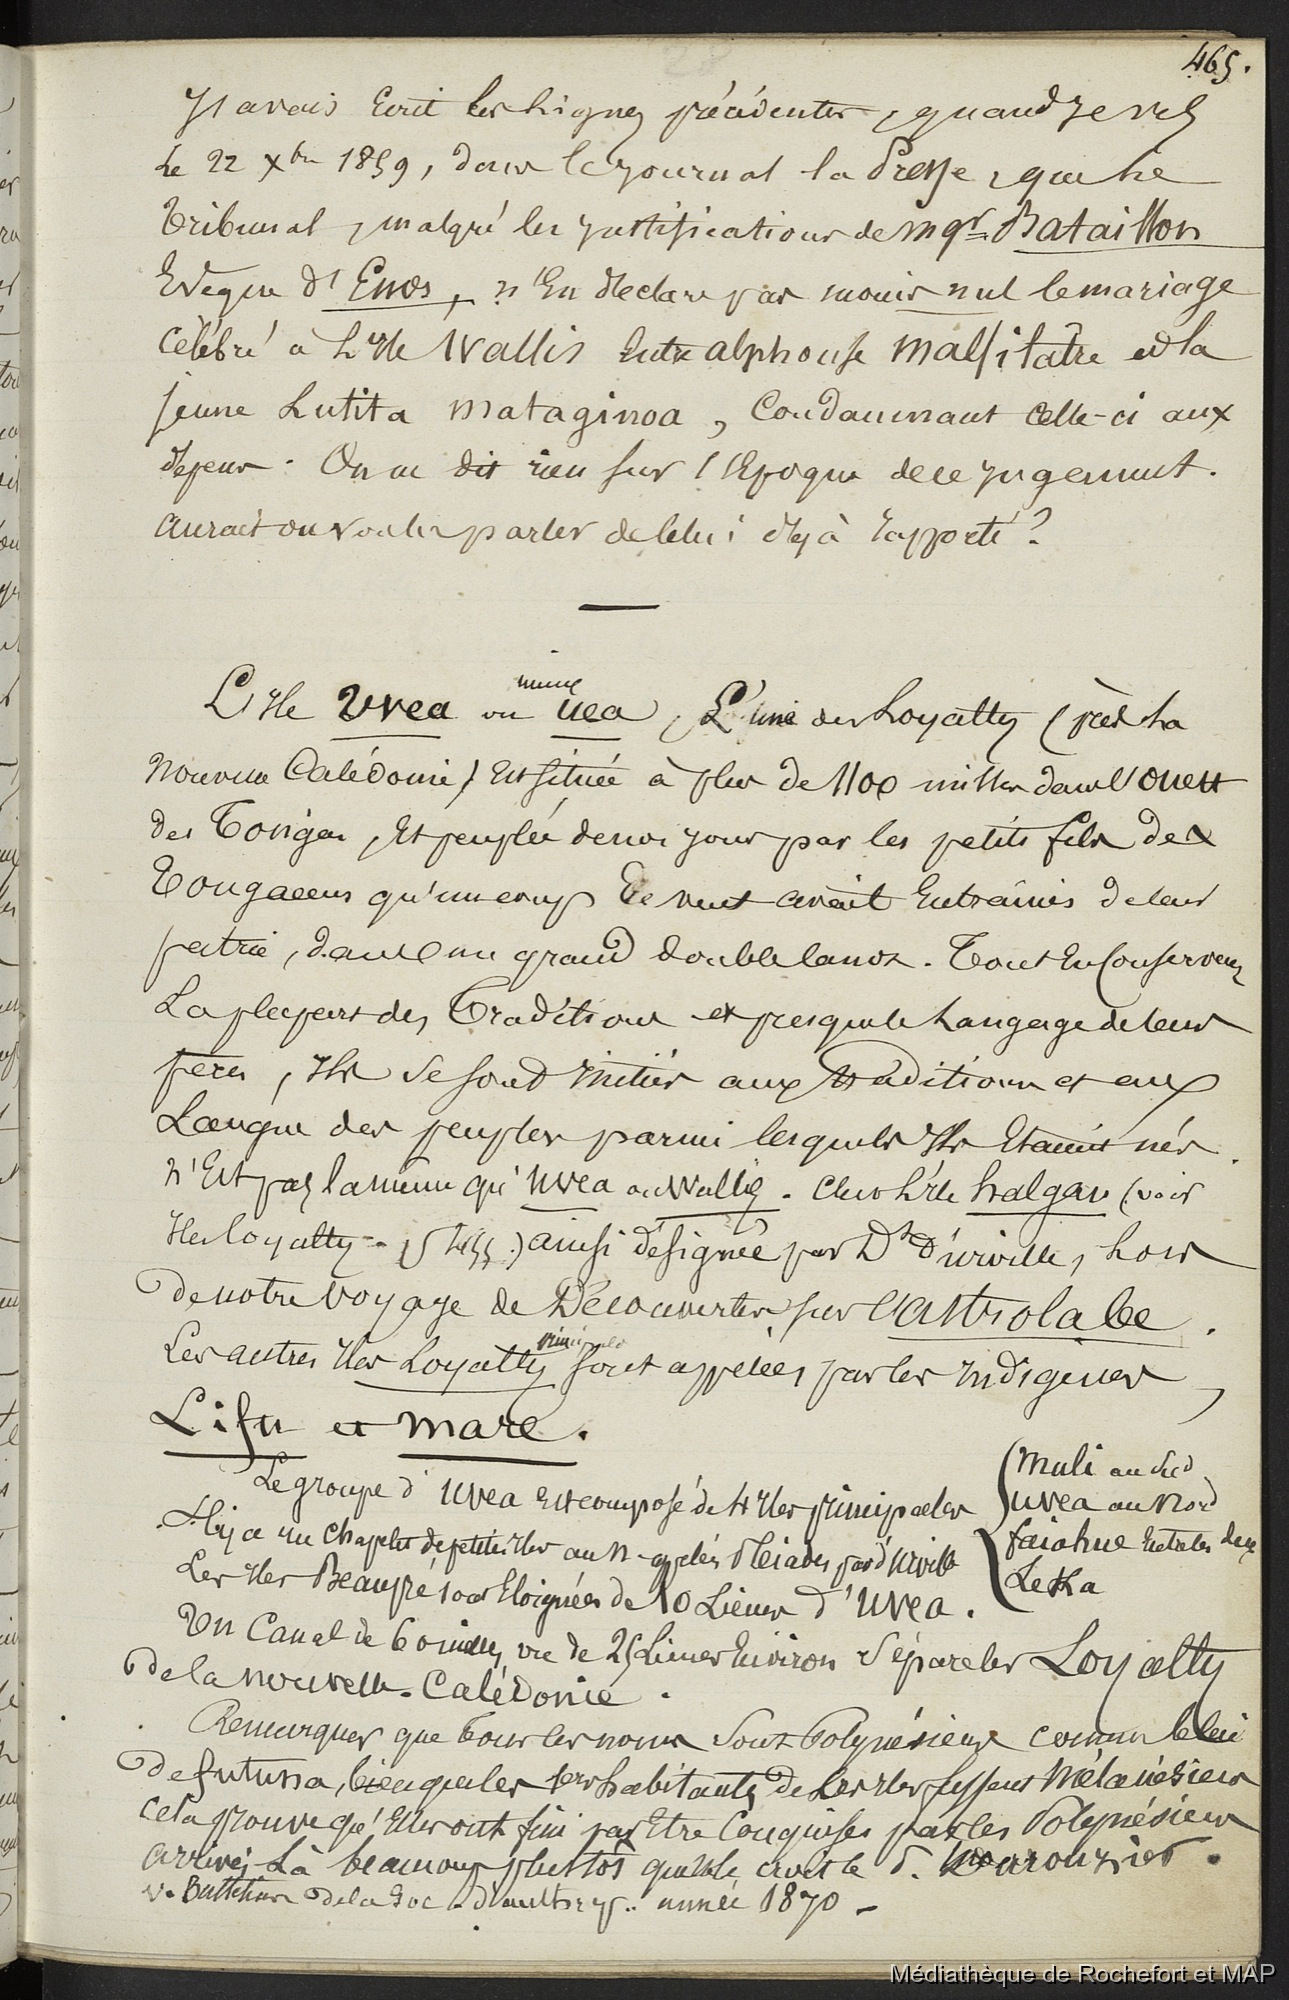 465.
J'avais écrit les lignes précédentes, quand je vis
le 22 Xbre 1859, dans le journal la Presse, que le
Tribunal, malgré les justifications de Mgr Bataillon
Evêque d'Enos, n'en déclare pas moins nul le mariage
célébré à l'île Wallis entre alphonse Malfilatre et la
jeune Lutita Mataginoa, condamnant celle-ci aux
dépens. On ne dit rien sur l'Epoque de ce jugement.
aurait on voulu parler de celui déjà rapporté ?
L'Ile Uvea ou même uea, L'une des Loyalty (près la
nouvelle Calédonie) est située à plus de 1100 milles dans l'ouest
des Tonga, et peuplée de nos jours par les petits fils de
Tongaeens qu'un coup de vent avait entrainés de leur
patrie, dans un grand double canot. Tout en conservant
La plupart des Traditions et presque le Langage de leurs
pères, Ils se sont initiés aux traditions et aux
Langues des peuples parmi lesquels Ils Etaient nés.
n'Est pas la même qu'uvea ou Wallis. C'est l'île halgan (voir
Iles loyalty - ) ainsi désignée par Dt d'urville, hors
de notre voyage de Découvertes sur l'astrolabe.
Les autres Iles Loyalty principales sont appelées par les indigènes,
Lifu et mare.
Le groupe d'uvea est composé de 4 Iles principales
Muli au sud
uvea au nord
faiahue entre les deux
Lekka
Il y a un chapelet de petites Iles au n. appelées Pléiades par d'urville
Les Iles Beaupré sont Eloignées de 10 Lieues d'uvea.
Un Canal de 60 milles, ou de 25 Lieues Environ sépare les Loyalty
de la nouvelle-Calédonie.
Remarquer que tous les noms sont Polynésiens comme celui
de futuna, bien que les 1ers habitants de ces Iles fussent Mélanésiens
cela prouve qu'elles ont fini par Etre conquises par les Polynésiens
arrivés Là beaucoup plustôt que ne le croit le d.
v. Bulletins de la Soc. d'anthrop.. année 1870 -
Médiathèque de Rochefort et MAP